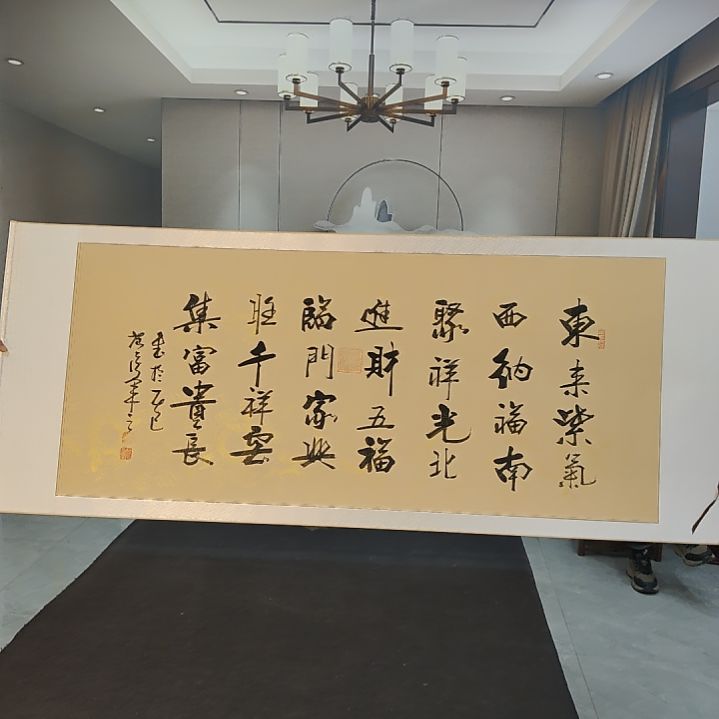 東来紫氣
西納福南
聚祥光北
進財五福
臨門家興
旺千祥雲
集富貴長